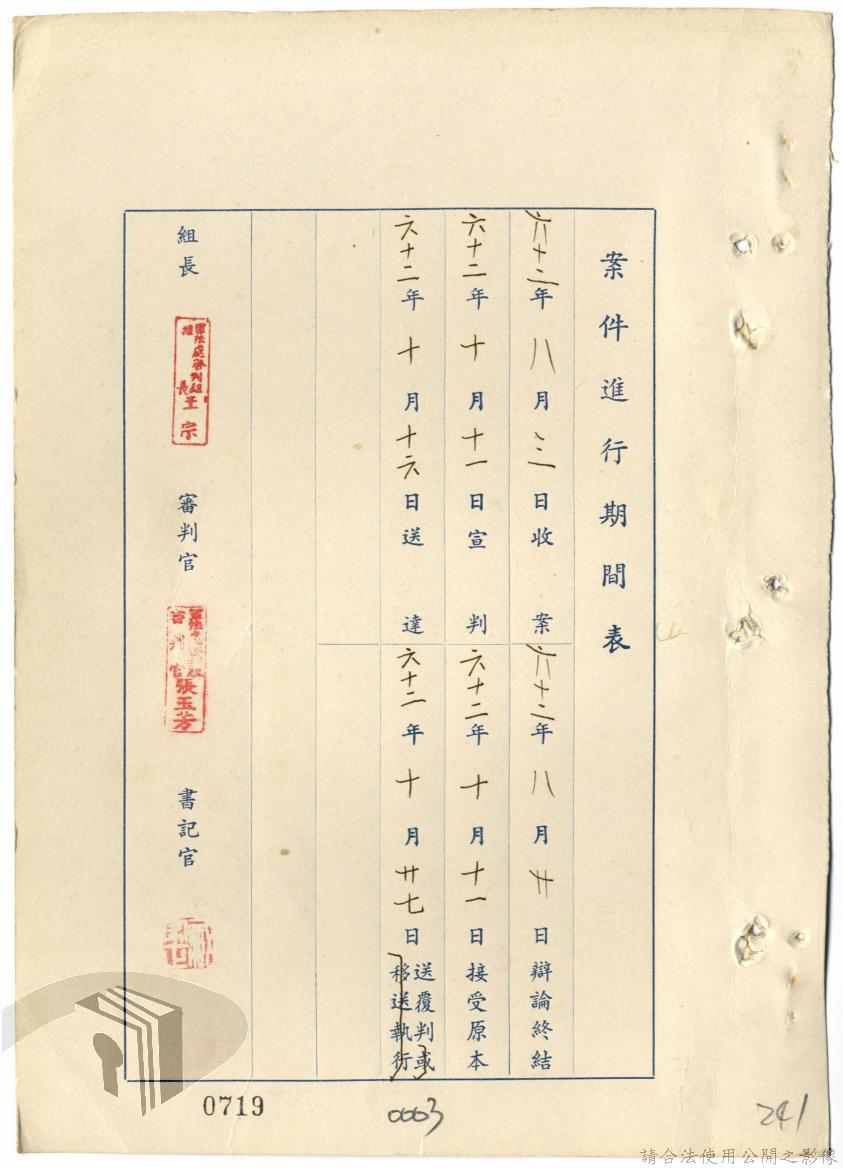 案件進行期間表
六十二年八月三日收案
六十二年八月廿日辯論終結
六十二年十月十一日宣判
六十二年十月十一日接受原本
六十二年十月十六日送達
六十二年十月廿七日送覆判或移送執行
組長
軍法處審判組
組長王宗
審判官
審判官張玉芳
書記官
0719
0003
241
請合法使用公開之影像